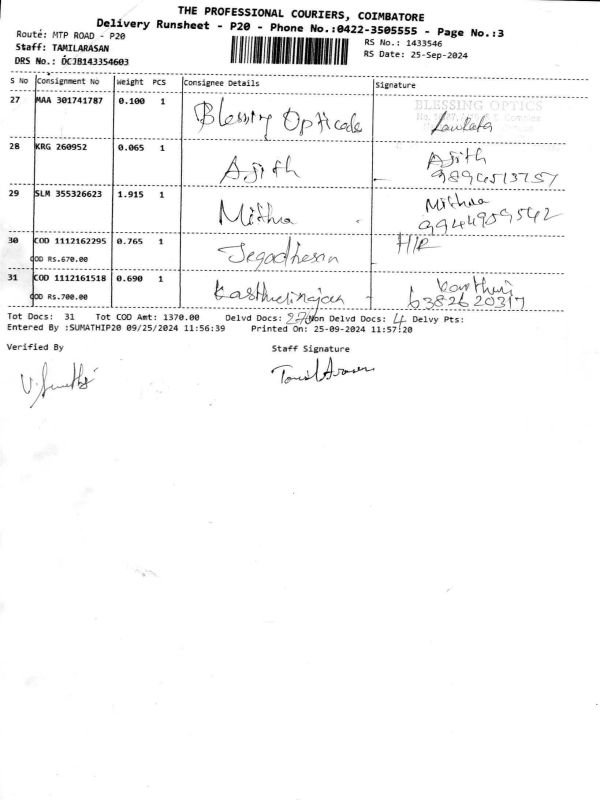 THE PROFESSIONAL COURIERS, COIMBATORE
Delivery Runsheet - P20 - Phone No.:0422-3505555 - Page No.:3
Route: MTP ROAD - P20
RS No.: 1433546
Staff: TAMILARASAN
RS Date: 25-Sep-2024
DRS No.: OCJB143354603
S No Consignment No Weight PCS Consignee Details Signature
27 MAA 301741787 0.100 1 Blessing Opticals
BLESSING OPTICS
28 KRG 260952 0.065 1 Ajith Ajith
29 SLM 355326623 1.915 1 Mithra Mithra
9944909542
30 COD 1112162295 0.765 1 Jegadhesan H/R
COD Rs.670.00
31 COD 1112161518 0.690 1 Kasthurirajan
COD Rs.700.00 6382620317
Tot Docs: 31 Tot COD Amt: 1370.00 Delvd Docs: 27 Non Delvd Docs: 4 Delvy Pts:
Entered By :SUMATHIP20 09/25/2024 11:56:39 Printed On: 25-09-2024 11:57:20
Verified By Staff Signature